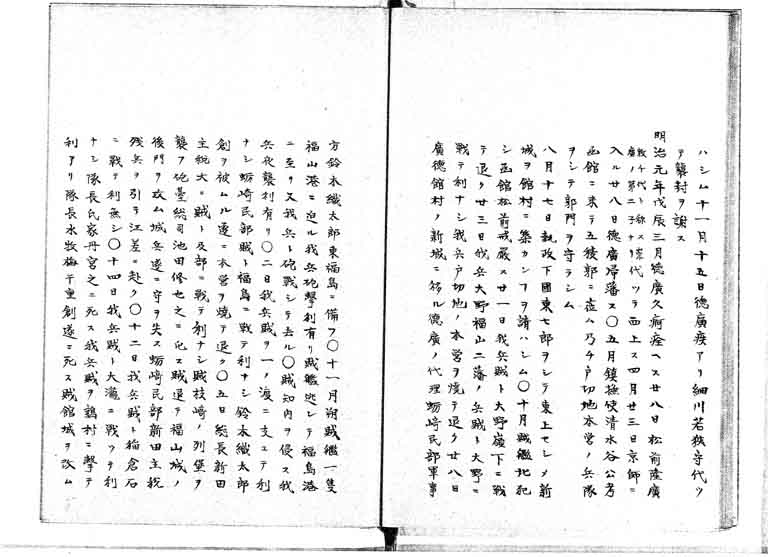 ハシム十一月十五日德廣疾アリ細川若狹守代ツ
テ襲封ヲ謝ス
明治元年戊辰三月德廣久痾痊ヘス廿八日松前隆廣
敦千代ト稱ス
廣ノ第二子ナリ代ツテ西上ス四月廿三日京師ニ
入ル廿八日德廣歸藩ス〇五月鎮撫使清水谷公考
函館ニ来テ五稜郭ニ莅ム乃チ戸切地本營ノ兵隊
ヲシテ郭門ヲ守ラシム
八月十七日執政下國東七郎ヲシテ東上セシメ新
城ヲ館村ニ築カンヿヲ請ハシム〇十月賊艦北犯
シ函館松前戒嚴ス廿一日我兵賊ト大野嶺下ニ戰
テ退ク廿三日我兵大野福山二藩ノ兵賊ト大野ニ
戰テ利ナシ我兵戸切地ノ本營ヲ燒テ退ク廿八日
廣德館村ノ新城ニ移ル德廣ノ代理蛎崎民部軍事
方鈴木織太郎東福島ニ備フ〇十一月朔賊艦一隻
福山港ニ迫ル我兵砲擊利有リ賊艦逃レテ福島港
ニ至リ又我兵ト砲戰シテ去ル〇賊知内ヲ侵ス我
兵夜襲利有リ〇二日我兵賊ヲ一ノ渡ニ支エテ利
ナシ蛎崎民部賊ト福島ニ戰テ利ナシ鈴木織太郎
創ヲ被ムル遂ニ本營ヲ燒テ退ク〇五日總長新田
主税大ニ賊ト及部ニ戰テ利ナシ賊枝崎ノ列堡ヲ
襲フ砲臺總司池田修也之ニ死ス賊退テ福山城ノ
後門ヲ攻ム城兵遂ニ守ヲ失ス蛎崎民部新田主税
殘兵ヲ引テ江差ニ赴ク〇十二日我兵賊ト稲倉石
ニ戰テ利無シ〇十四日我兵賊ト大瀧ニ戰ツテ利
ナシ隊長氏家丹宮之ニ死ス我兵賊ヲ鶉村ニ擊テ
利アリ隊長水牧梅干重創遂ニ死ス賊館城ヲ攻ム